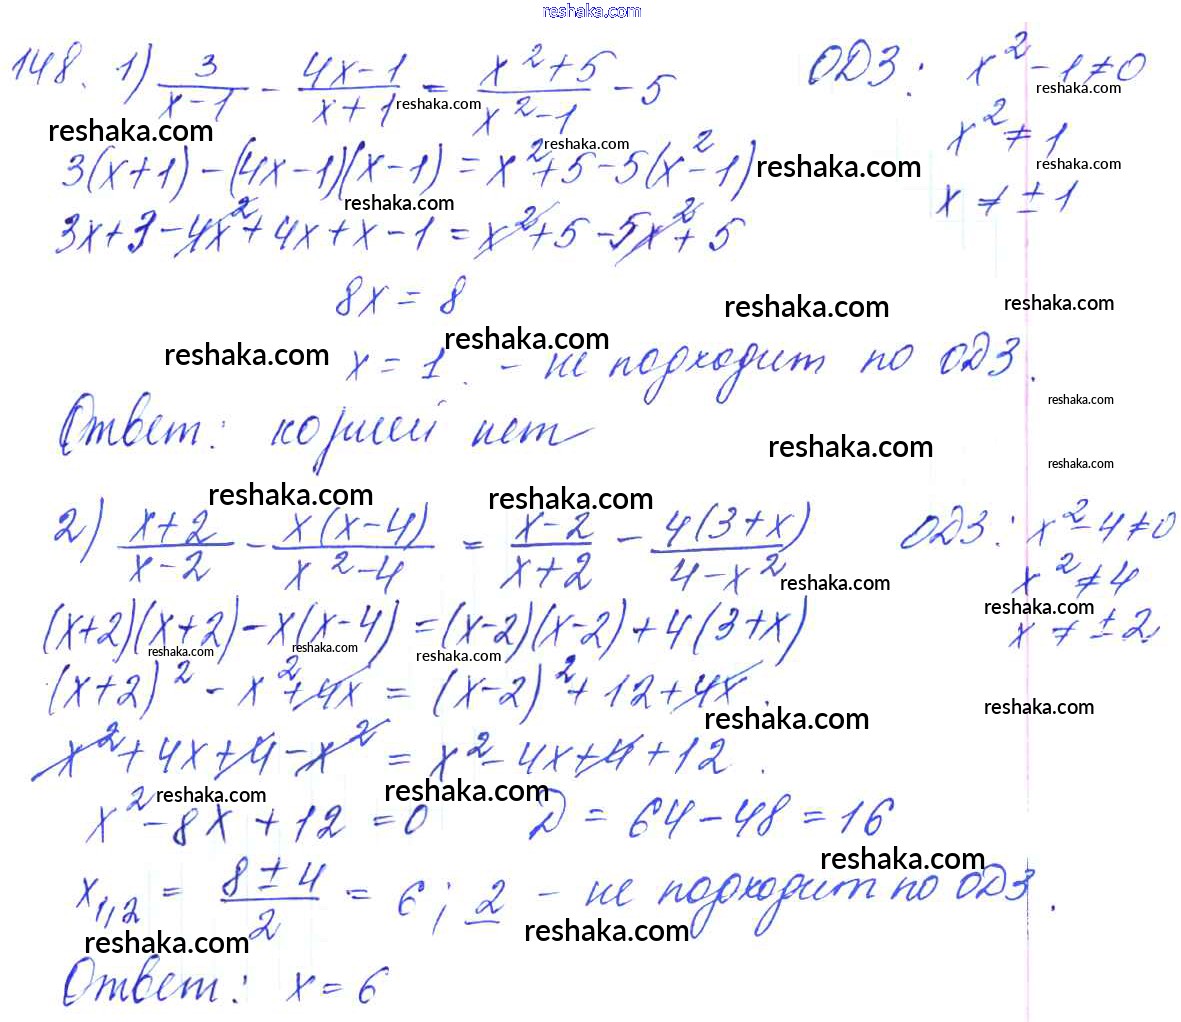 reshaka.com
148. 1) 3/(x-1) - (4x-1)/(x+1) = (x²+5)/(x²-1) - 5 ОДЗ: x²-1≠0
reshaka.com reshaka.com reshaka.com
x²≠1
reshaka.com reshaka.com
3(x+1)-(4x-1)(x-1)=x²+5-5(x²-1) reshaka.com reshaka.com
x≠±1
reshaka.com
3x+3-4x²+4x+x-1=x²+5-5x²+5
8x=8 reshaka.com reshaka.com
reshaka.com reshaka.com
x=1. - не подходит по ОДЗ.
reshaka.com
Ответ: корней нет
reshaka.com
reshaka.com
reshaka.com reshaka.com
2) (x+2)/(x-2) - x(x-4)/(x²-4) = (x-2)/(x+2) - 4(3+x)/(4-x²) ОДЗ: x²-4≠0
reshaka.com
x²≠4
reshaka.com
(x+2)(x+2)-x(x-4)=(x-2)(x-2)+4(3+x) x≠±2
reshaka.com reshaka.com reshaka.com
(x+2)²-x²+4x=(x-2)²+12+4x.
reshaka.com reshaka.com
x²+4x+4-x²=x²-4x+4+12.
reshaka.com reshaka.com
x²-8x+12=0 D=64-48=16
reshaka.com
x₁,₂ = (8±4)/2 = 6; 2 - не подходит по ОДЗ.
reshaka.com reshaka.com
Ответ: x=6